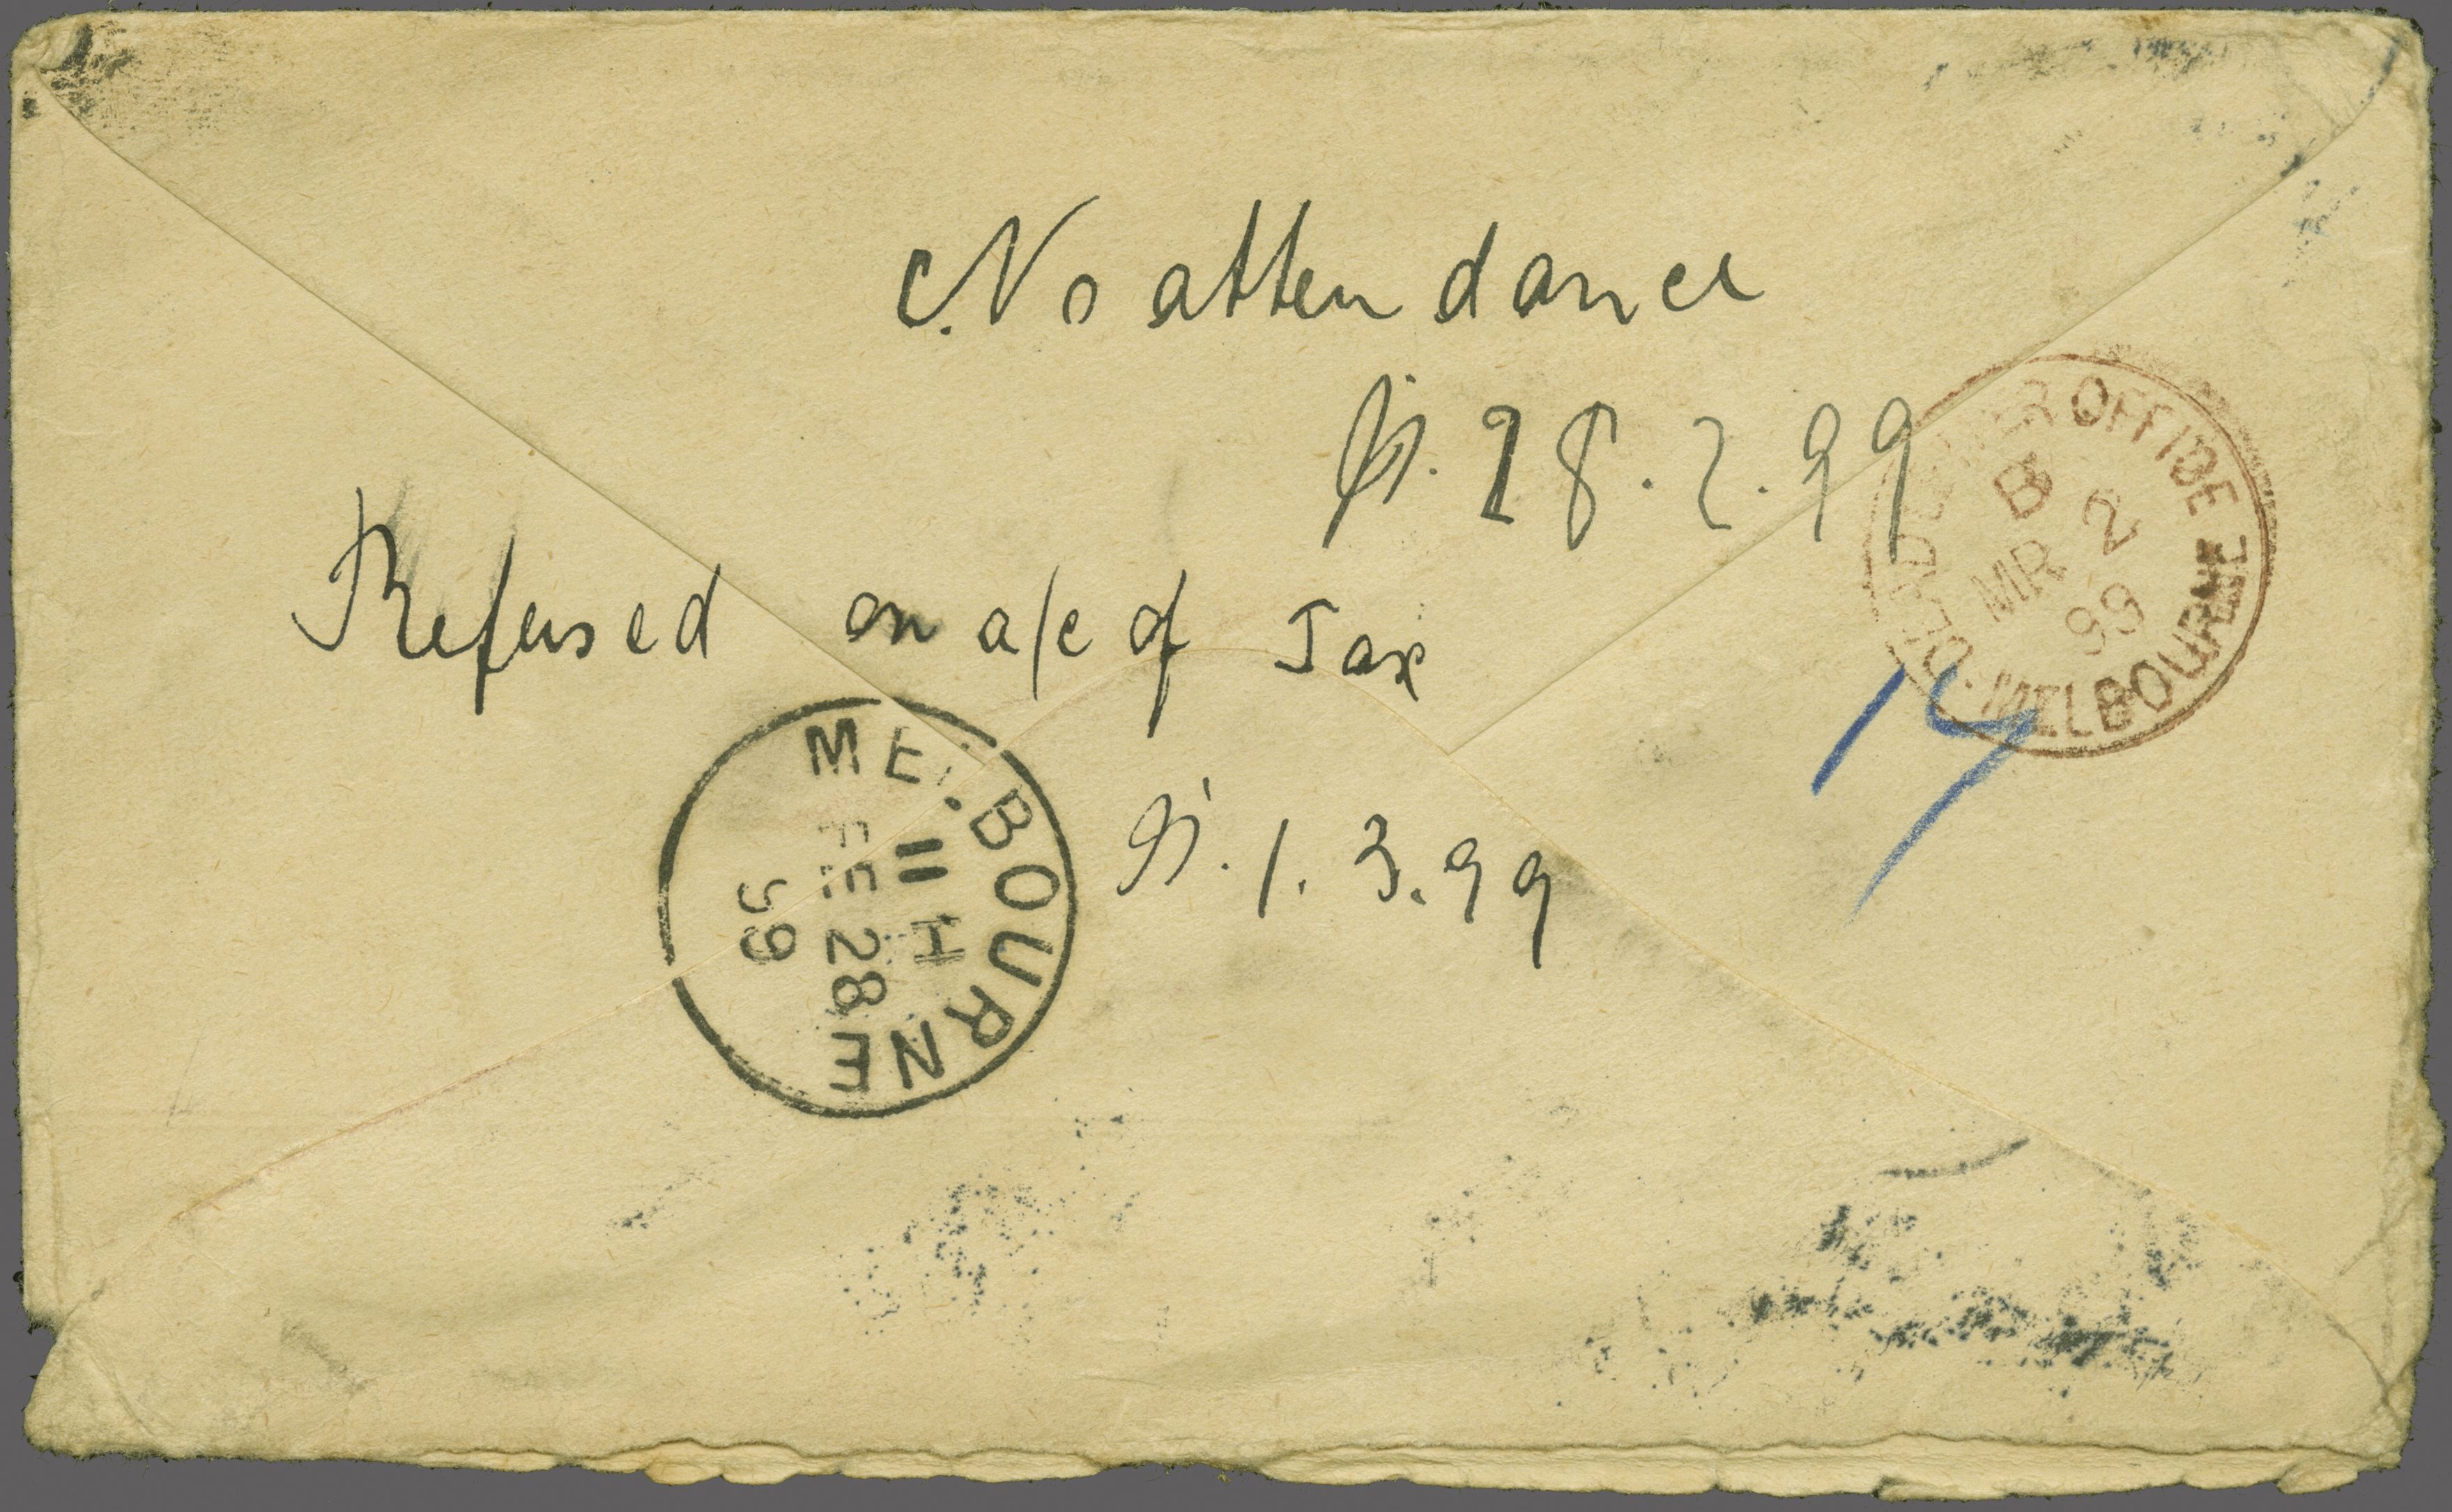 No attendance
28.2.99
Refused on a/c of Tax
1.3.99
MELBOURNE
11 H
FE 28
99
DEAD LETTER OFFICE
B
MR 2
99
MELBOURNE